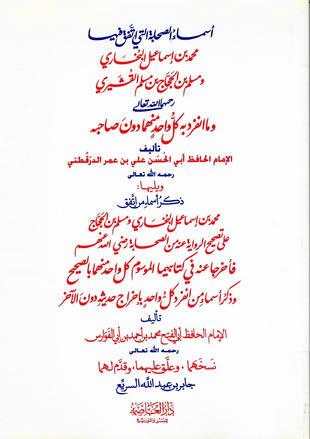 أسماء الصحابة التي اتفق فيها
محمد بن إسماعيل البخاري
ومسلم بن الحجاج بن مسلم القشيري
رحمهما الله تعالى
وما انفرد به كل واحد منهما دون صاحبه
تأليف
الإمام الحافظ أبي الحسن علي بن عمر الدرقطني
رحمه الله تعالى
ويليها:
ذكر أسماء من اتفق
محمد بن إسماعيل البخاري ومسلم بن الحجاج
على تصحيح الرواية عنه من الصحابة رضي الله عنهم
فأخرجا عنه في كتابيهما الموسوم كل واحد منهما بالصحيح
وذكر أسماء من انفرد كل واحد بإخراج حديثه دون الآخر
تأليف
الإمام الحافظ أبي الفتح محمد بن أحمد بن أبي الفوارس
رحمه الله تعالى
نسخهما، وعلق عليهما، وقدم لهما
جابر بن عبد الله السريع
دار العاصمة
للنشر والتوزيع